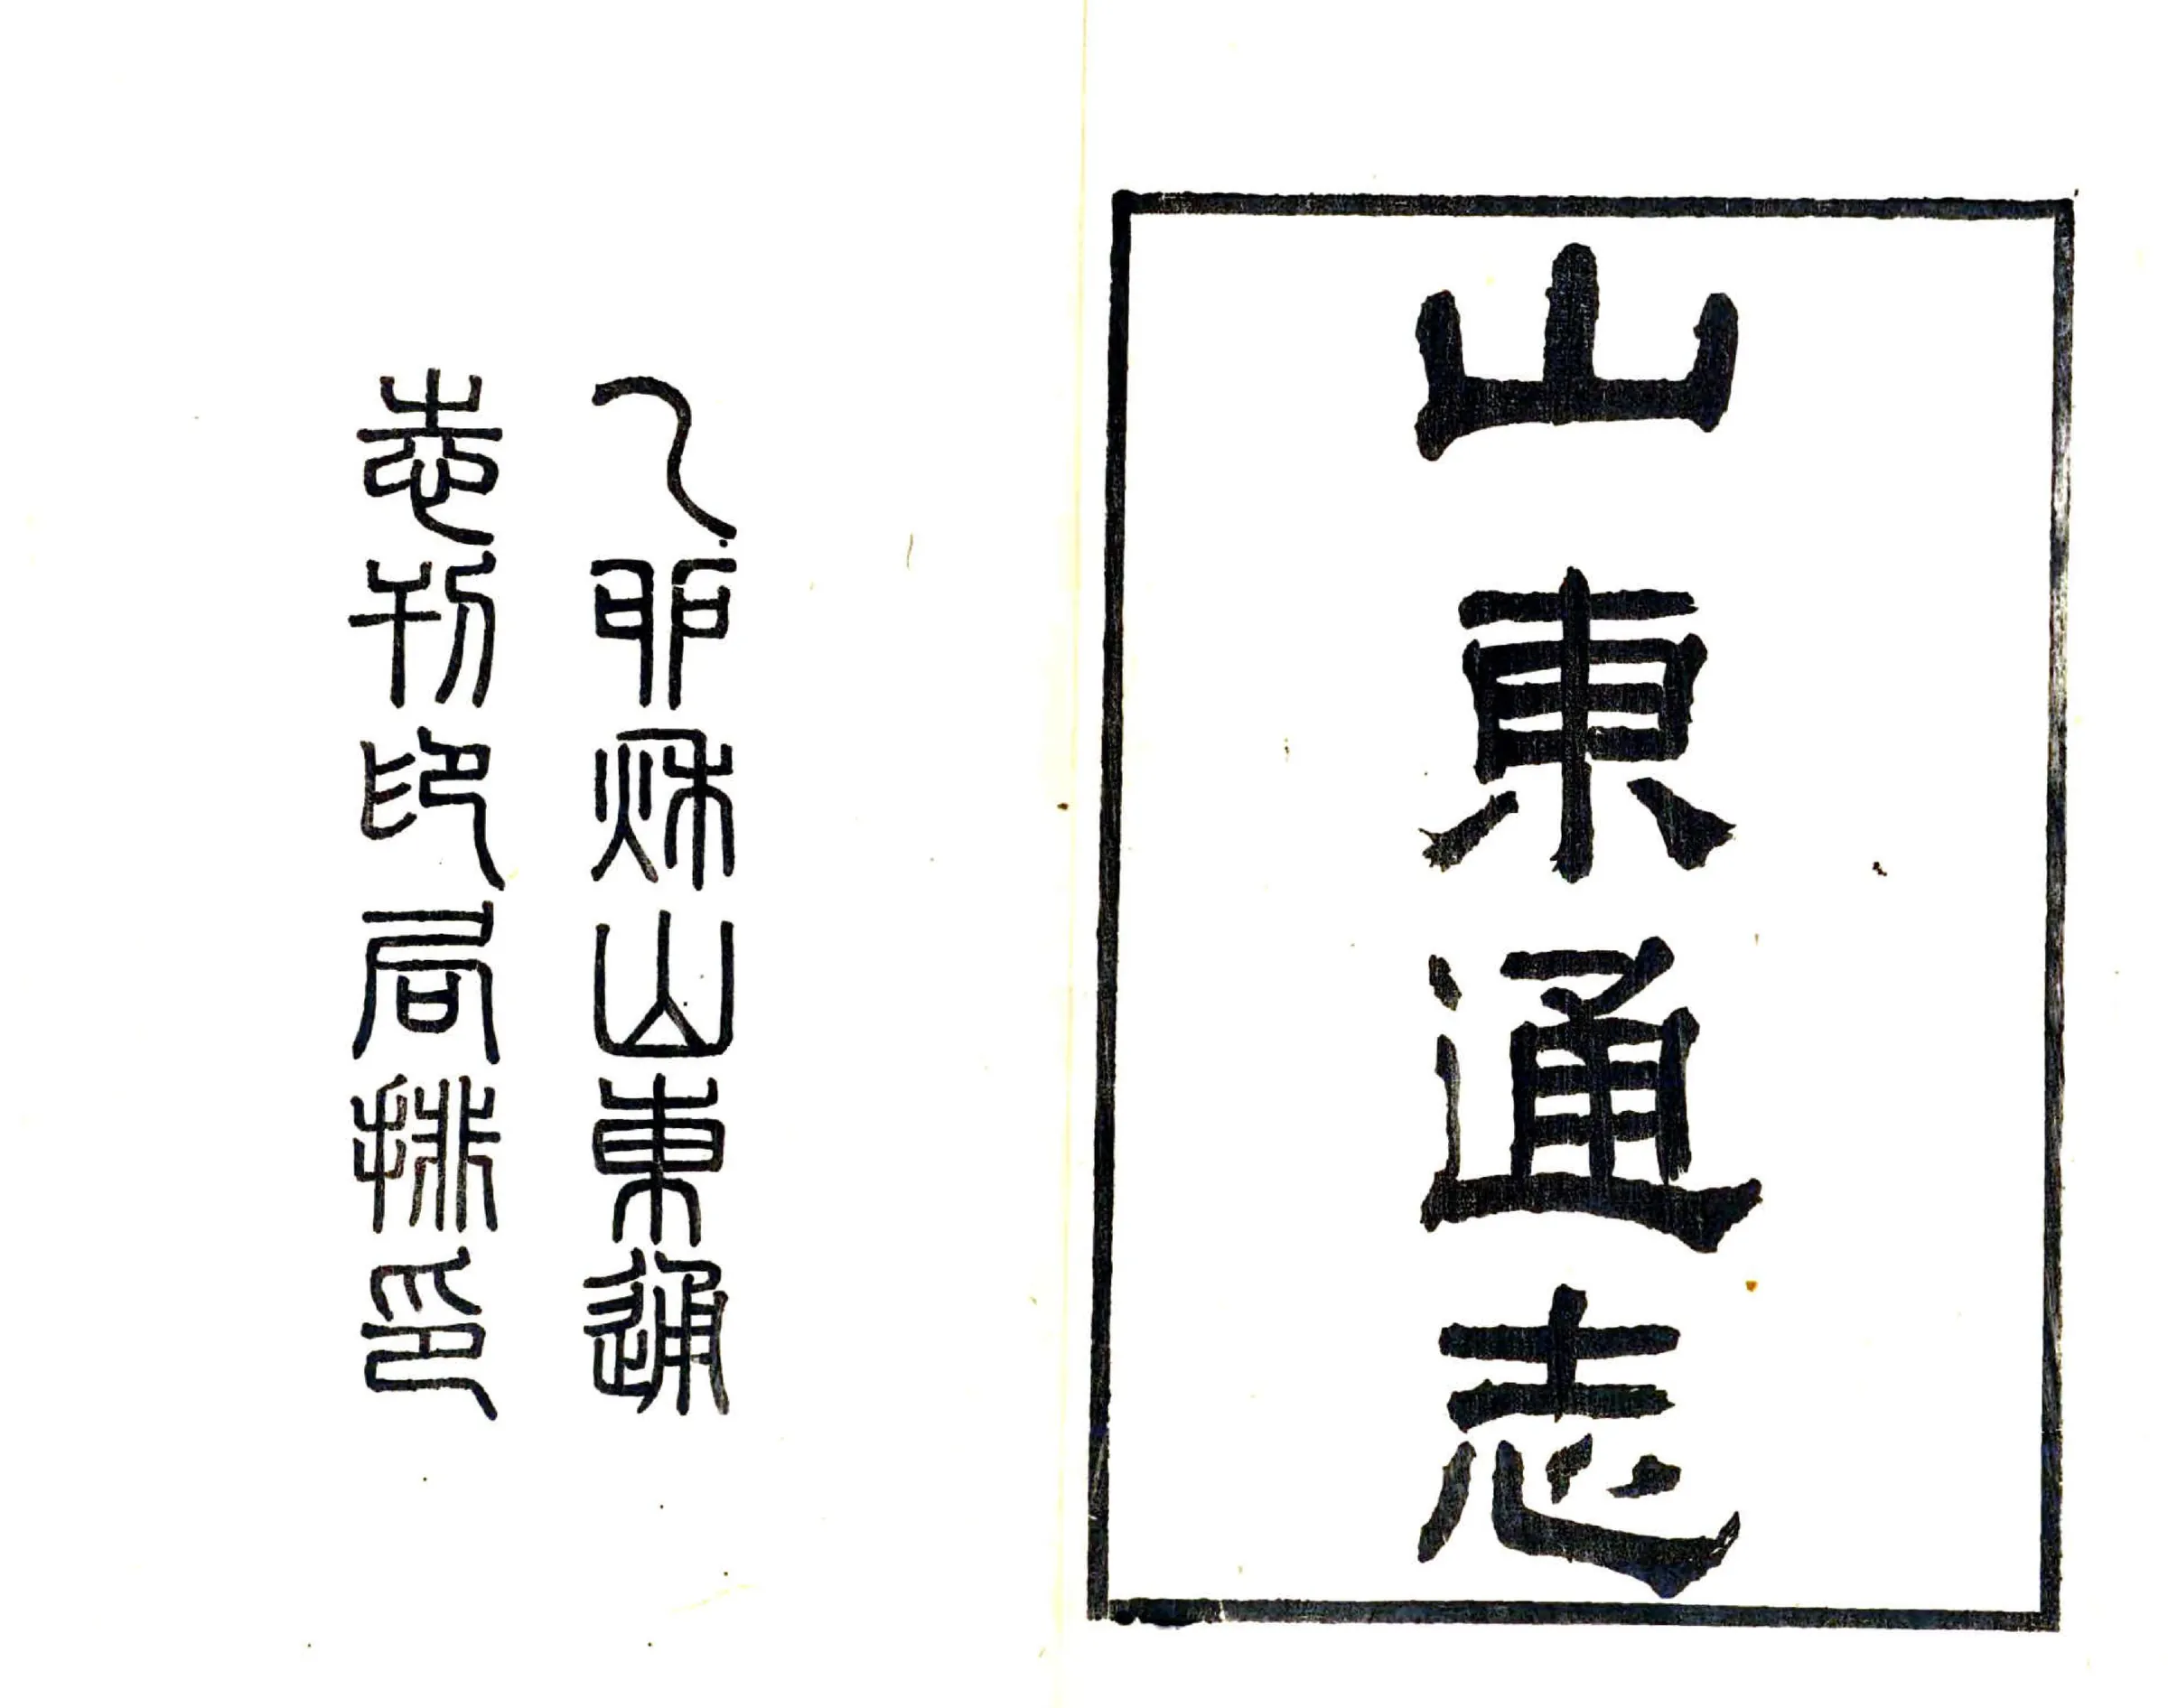 山東通志
乙卯秋山東通
志刊印局排印